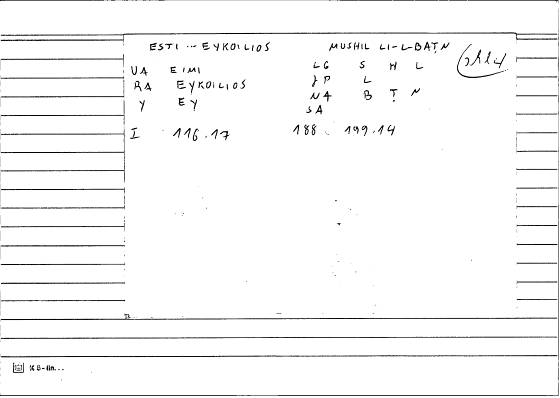 ESTI ... EYKOILIOS MUSHIL LI-L-BAṬN
UA EIMI LG S H L
RA EYKOILIOS JP L
Y EY NA B Ṭ N
SA
I 116.17 188 199.14